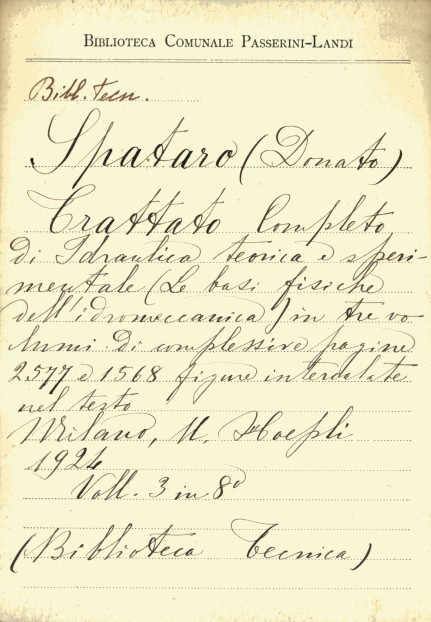 Biblioteca Comunale Passerini-Landi
Bibl. tecn.
Spataro (Donato)
Trattato Completo
di Idraulica teorica e speri-
mentale (Le basi fisiche
dell'idromeccanica) in tre vo
lumi di complessive pagine
2577 e 1568 figure intercalate
nel testo
Milano, U. Hoepli
1924
Voll. 3 in 8º
(Biblioteca Tecnica)